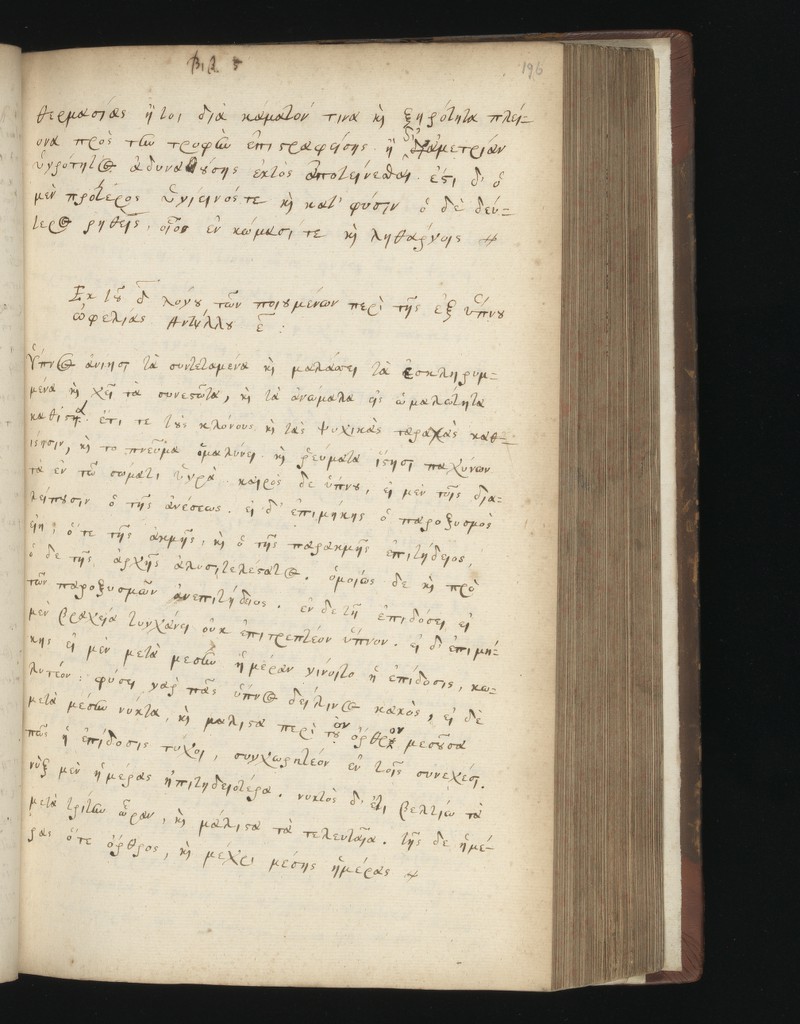 Βιβ. 5
196
θερμασίας ἤτοι διὰ κάματόν τινα κὴ ξηρότητα πλεί-
ονα πρὸς τὴν τροφὴν ἐπιστραφείσης. ἢ δι' ἀμετρίαν
ὑγρότητος ἀδυνατούσης ἐκτὸς ἀποτείνεσθαι. ἔστι δ' ὁ
μὲν πρότερος ὑγιεινός τε κὴ κατ' φύσιν ὁ δὲ δεύ-
τερος ῥηθεὶς, οἷος ἐν κώμασί τε κὴ ληθάργοις
Ἐκ τοῦ δ λόγου τῶν ποιουμένων περὶ τῆς ἐξ ὕπνου
ὠφελίας Ἀντύλλου ε :
Ὕπνος ἀνίησι τὰ συντεταμένα κὴ μαλάσσει τὰ ἐσκληρυμ-
μένα κὴ χεῖ τὰ συνεστῶτα, κὴ τὰ ἀνώμαλα εἰς ὡμαλότητα
καθίστησι. ἔτι τε τοὺς κλόνους κὴ τὰς ψυχικὰς ταραχὰς καθ-
ίστησιν, κὴ τὸ πνεῦμα ὁμαλύνει. κὴ ῥεύματα ἵστησι παχύνων
τὰ ἐν τῷ σώματι ὑγρά. καιρὸς δὲ ὕπνου, εἰ μὲν τοῖς δια-
λείπουσιν ὁ τῆς ἀνέσεως. εἰ δ' ἐπιμήκης ὁ παροξυσμὸς
εἴη, ὅ τε τῆς ἀκμῆς, κὴ ὁ τῆς παρακμῆς ἐπιτήδειος,
ὁ δὲ τῆς ἀρχῆς ἀλυσιτελέστατος. ὁμοίως δὲ κὴ πρὸ
τῶν παροξυσμῶν ἀνεπιτήδειος. ἐν δὲ τῇ ἐπιδόσει εἰ
μὲν βραχεῖα τυγχάνει οὐκ ἐπιτρεπτέον ὕπνον. εἰ δ' ἐπιμή-
κης εἰ μὲν μετὰ μέσην ἡμέραν γίνοιτο ἡ ἐπίδοσις, κω-
λυτέον: φύσει γὰρ πᾶς ὕπνος δείλινος κακὸς, εἰ δὲ
μετὰ μέσην νύκτα, κὴ μάλιστα περὶ τὸν ὄρθρον μεσοῦσα
πως ἡ ἐπίδοσις τύχοι, συγχωρητέον ἐν τοῖς συνεχέσι.
νὺξ μὲν ἡμέρας ἐπιτηδειοτέρα. νυκτὸς δ' ἔτι βελτίω τὰ
μετὰ τρίτην ὥραν, κὴ μάλιστα τὰ τελευταῖα. τῆς δὲ ἡμέ-
ρας ὅ τε ὄρθρος, κὴ μέχρι μέσης ἡμέρας